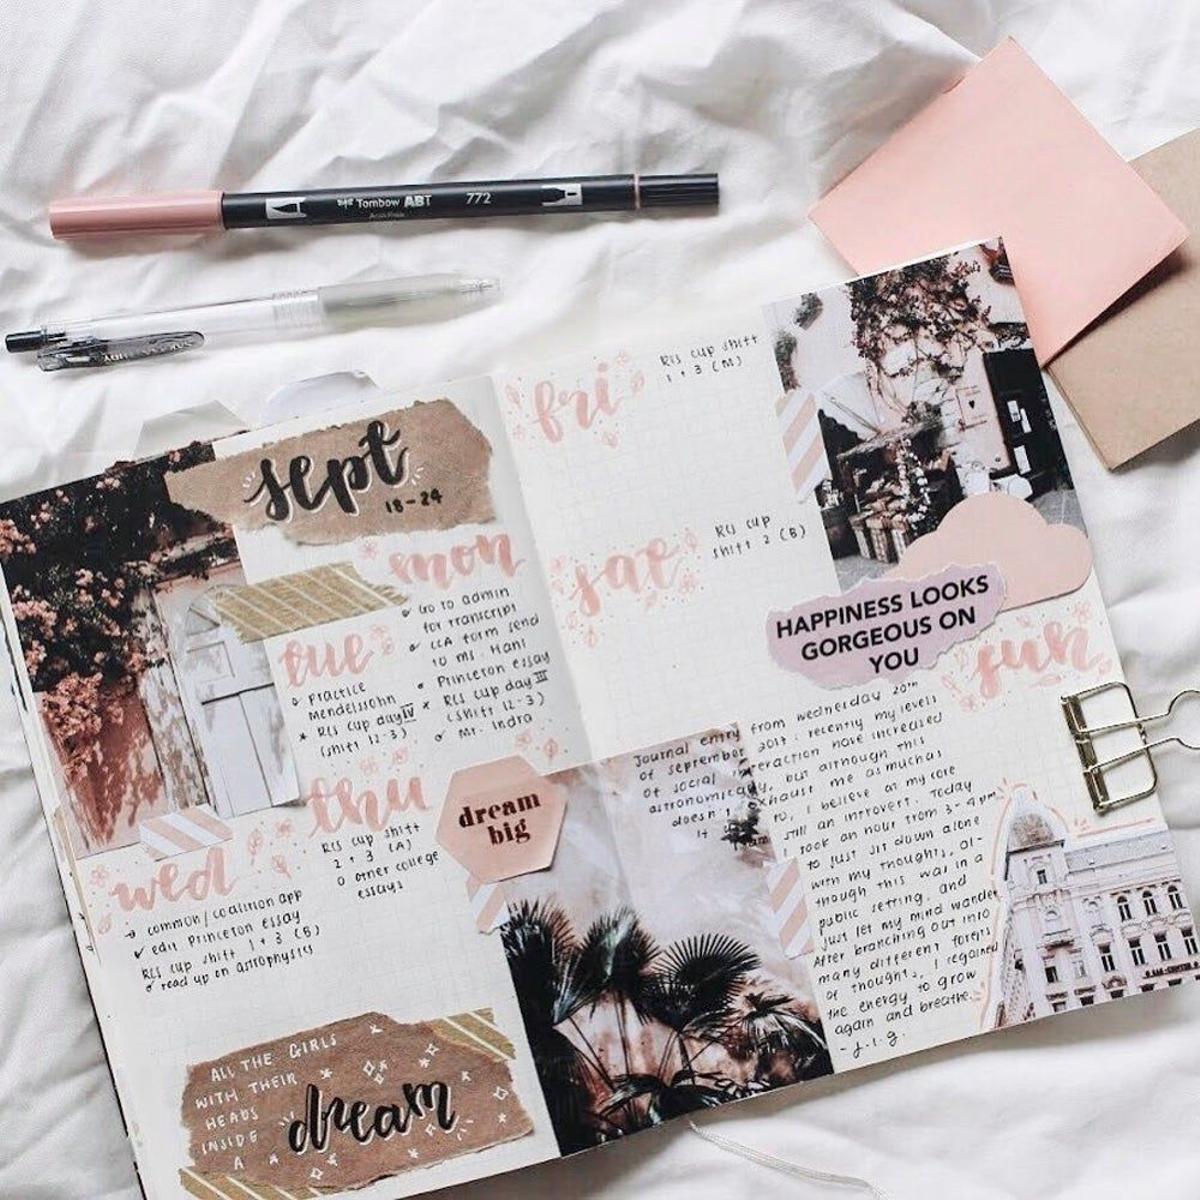 Tombow ABT
772
sept
18-24
mon
Go to admin
for transcript
CCA form send
to ms. Hani
Princeton essay
RCS cup day III
(shift 12-3)
Mr. Indra
tue
Practice
Mendelssohn
RCS cup day IV
(shift 12-3)
wed
common/coalition app
edit Princeton essay
RCS cup shift 1+3 (B)
read up on astrophysics
thu
RCS cup shift
2+3 (A)
other college
essays
dream
big
ALL THE GIRLS
WITH THEIR
HEADS
INSIDE
A
dream
fri
RCS cup shift
1+3 (M)
sat
RCS cup
shift 2 (B)
HAPPINESS LOOKS
GORGEOUS ON
YOU
sun
Journal entry from wednesday 20th
of september 2017. recently my levels
of social interaction have increased
astronomically, but although this
doesn't exhaust me as much as
it to, I believe at my core
still an introvert. Today
I took an hour from 3-4pm
to just sit down alone
with my thoughts, al-
though this was in a
public setting, and
just let my mind wander
After branching out into
many different forests
of thoughts, I regained
the energy to grow
again and breathe.
- j.i.g.